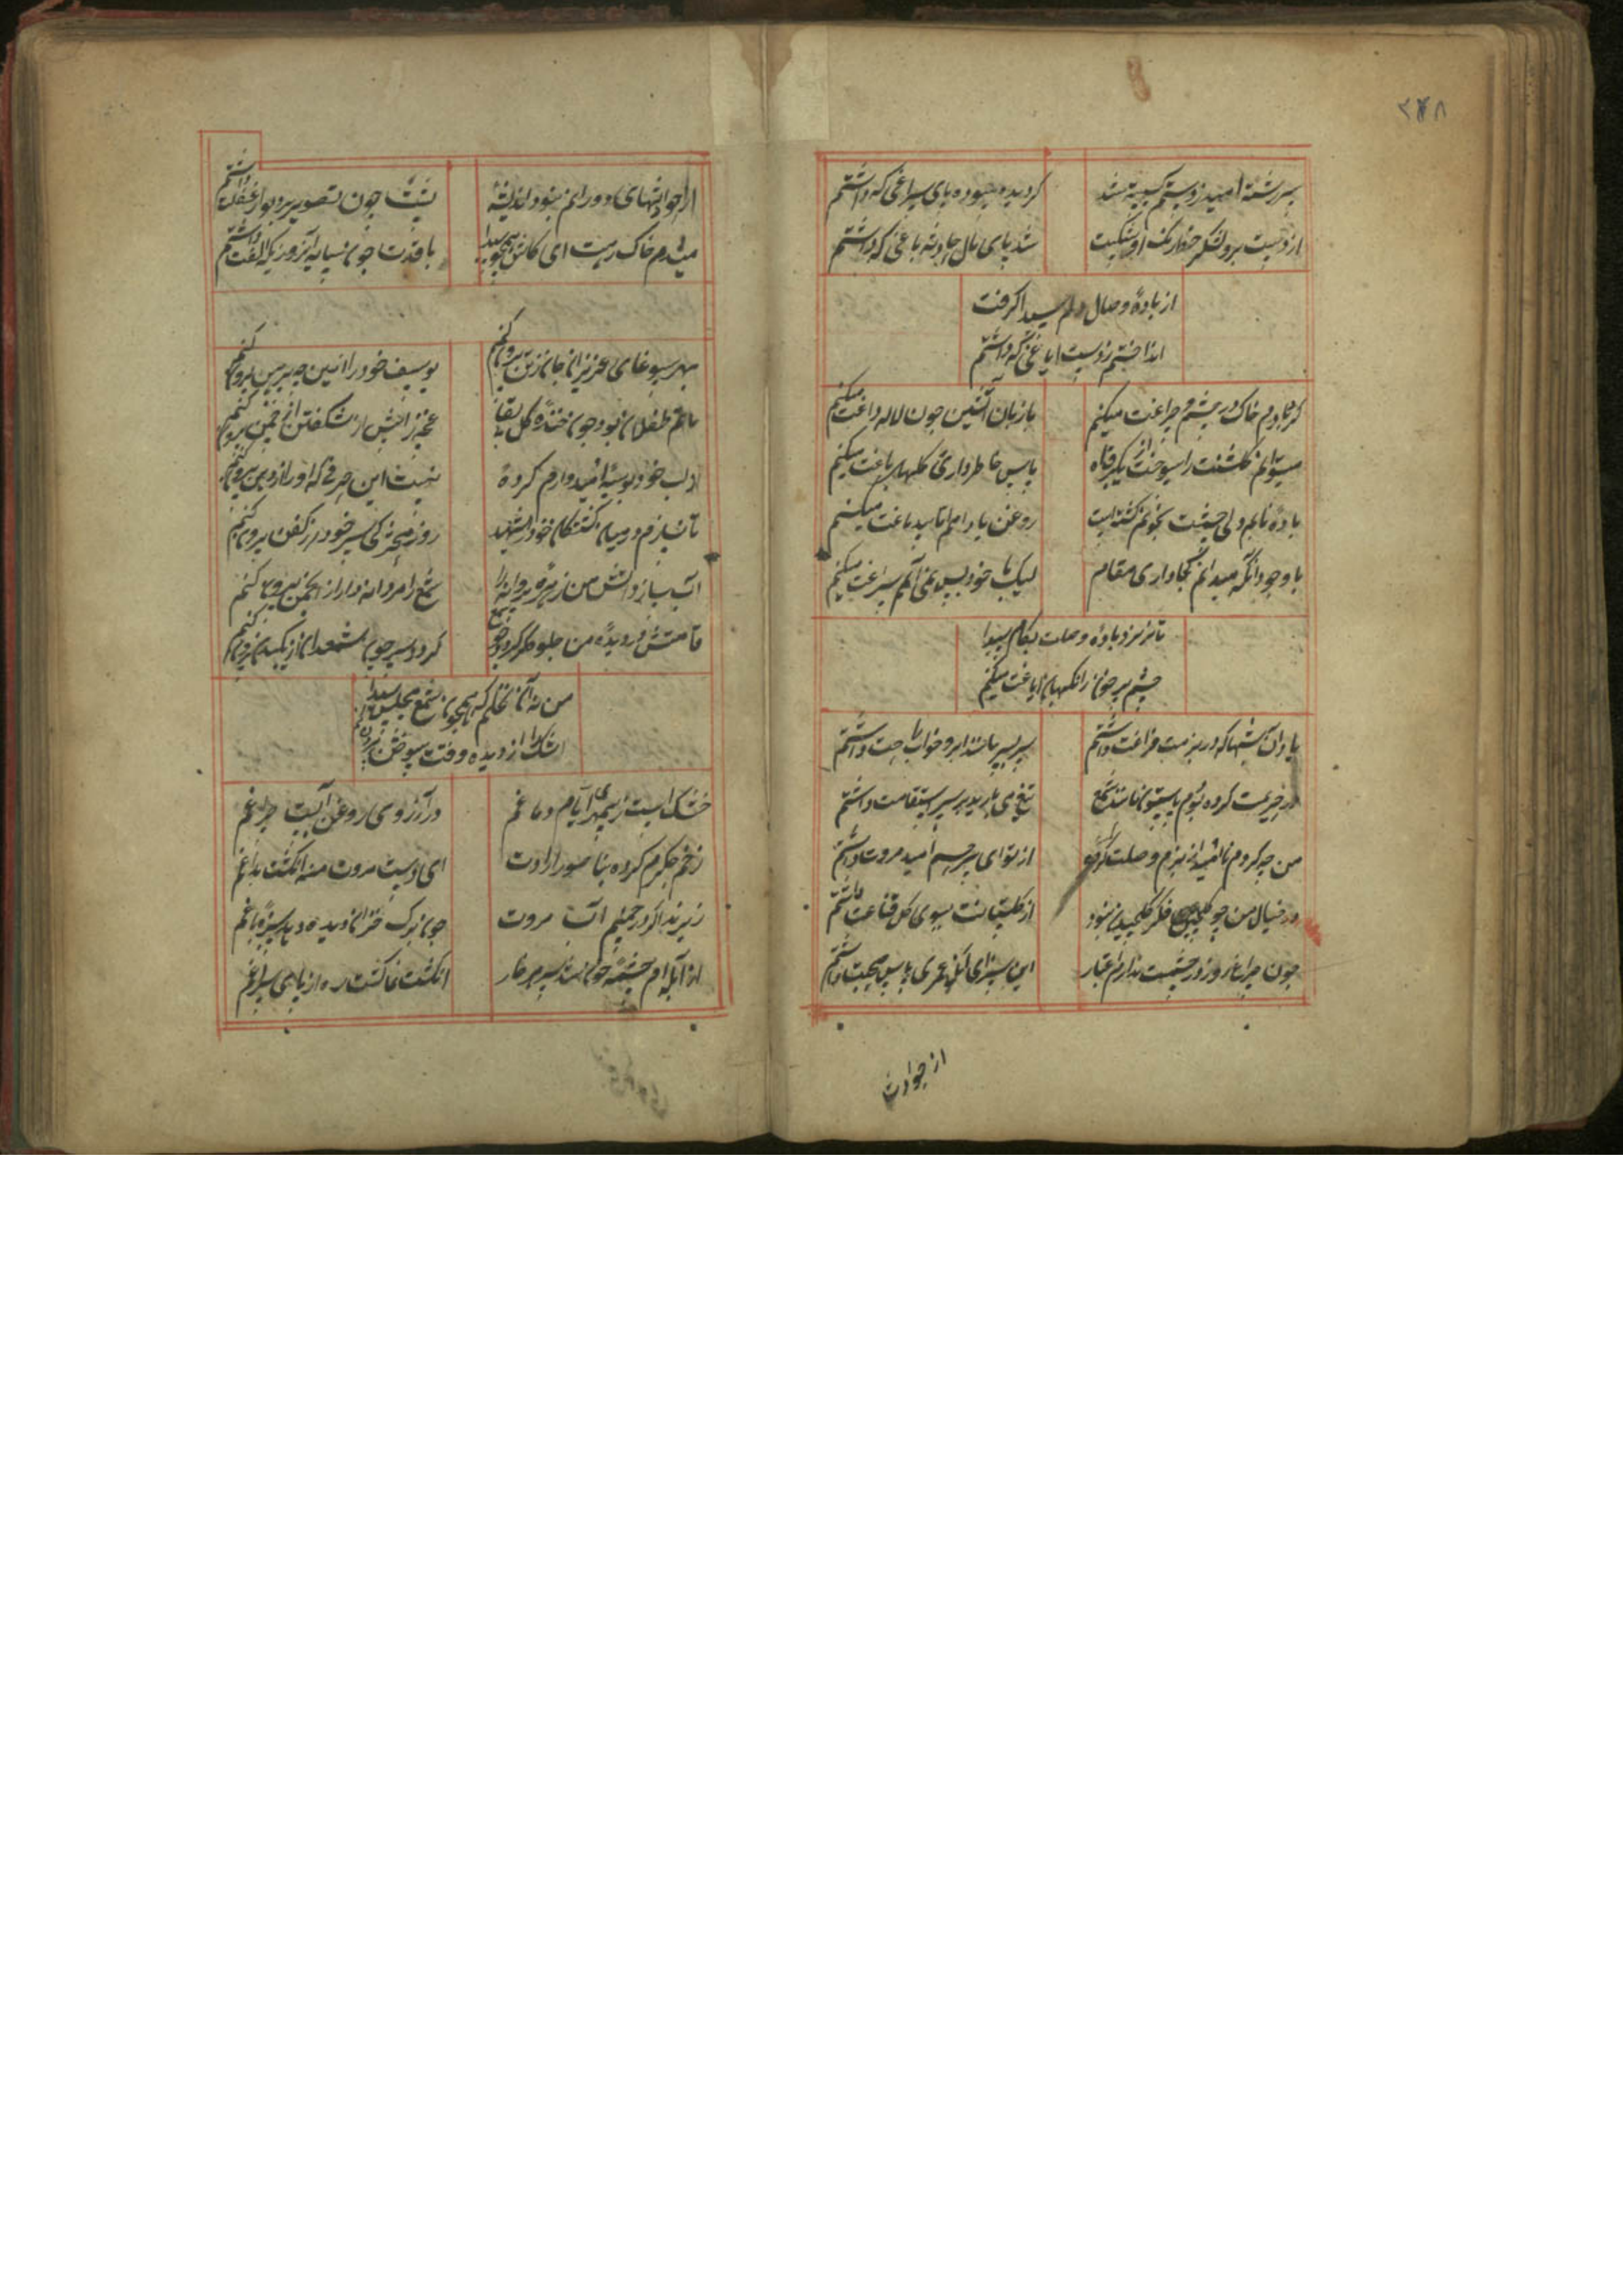 ۲۴۸
سررشته امید ز دستم گسسته شد
گردیده سوده پای سراغی که داشتم
از دست برد لشکر خط رنگ او شکست
شد پای مال حادثه باغی که داشتم
از بادهٔ وصال دلم سیدا گرفت
انداختم ز دست ایاغی که داشتم
میکنم
با زبان آتشین چون لاله داغت میکنم
میتوانم گلشنت را سوختن از یک نگاه
پاس خاطرداری گلهای باغت میکنم
باده نابم ولی چشمت بخونم تشنه است
روغن بادامم اما سد باغت میکنم
با وجود آنکه میدانم کجا داری مقام
لیک با خود بس نمی آیم سراغت میکنم
تا نریزد باده وصلت بکام سیدا
چشم پر خون را نگهبان ایاغت میکنم
یاد آن شبها که در بزمت فراغت داشتم
سر بسر مانند ابرو خواب راحت داشتم
در حریمت کرده بودم پا ستون مانند شمع
تیغ می بارید بر سر استقامت داشتم
من چه کردم ناامید از بزم وصلت
از تو ای بیرحم امید مروت داشتم
در خیال من چو گلچین فکر گلچیدن نبود
از گلستانت ببوی گل قناعت داشتم
چون چراغ روز در چشمت ندارم اعتبار
این سزای آنکه عمری پاس صحبت داشتم
از حوادث
از حوادثهای دورانم نبود اندیشهٔ
پشت چون تصویر بر دیوار غفلت داشتم
میشدم خاک رهت ای کاش همچون سیدا
با قدت چون سایه آنروزیکه الفت داشتم
بهر سوغای عزیزان جان ز تن بیرون کنم
یوسف خود را ازین چه پیرهن بیرون کنم
ماتم طفلان بود چون خنده گل بی بقا
غنچه را پیش از شکفتن از چمن بیرون کنم
از لب خود بوسهٔ امیدوارم کرده
نیست این حرفی که او را از دهن بیرون کنم
تا نسازم در میان کشتگان خود را شهید
روز محشر کی سر خود از کفن بیرون کنم
آب سازد آتش من زهره پروانه را
شمع را مردانه وار از انجمن بیرون کنم
قامتش در دیده من جلوه گر گردد چو شمع
گردد سر چون شمعدان از پیرهن بیرون کنم
من نه آن نخلم که همچون شمع مجلس سیدا
اشک را از دیده وقت سوختن بیرون کنم
خشک است ز بیمهری ایام دماغم
در آرزوی روغن آبست چراغم
زخم جگرم کرده بناسور ارادت
ای دست مروت منه انگشت بداغم
زیزند اگر در چمنم آب مروت
چون برگ خزان دیده دمد سبزه باغم
از آبله ام چشمه خون شد سر هر خار
انگشت نما گشت ره از پای سراغم